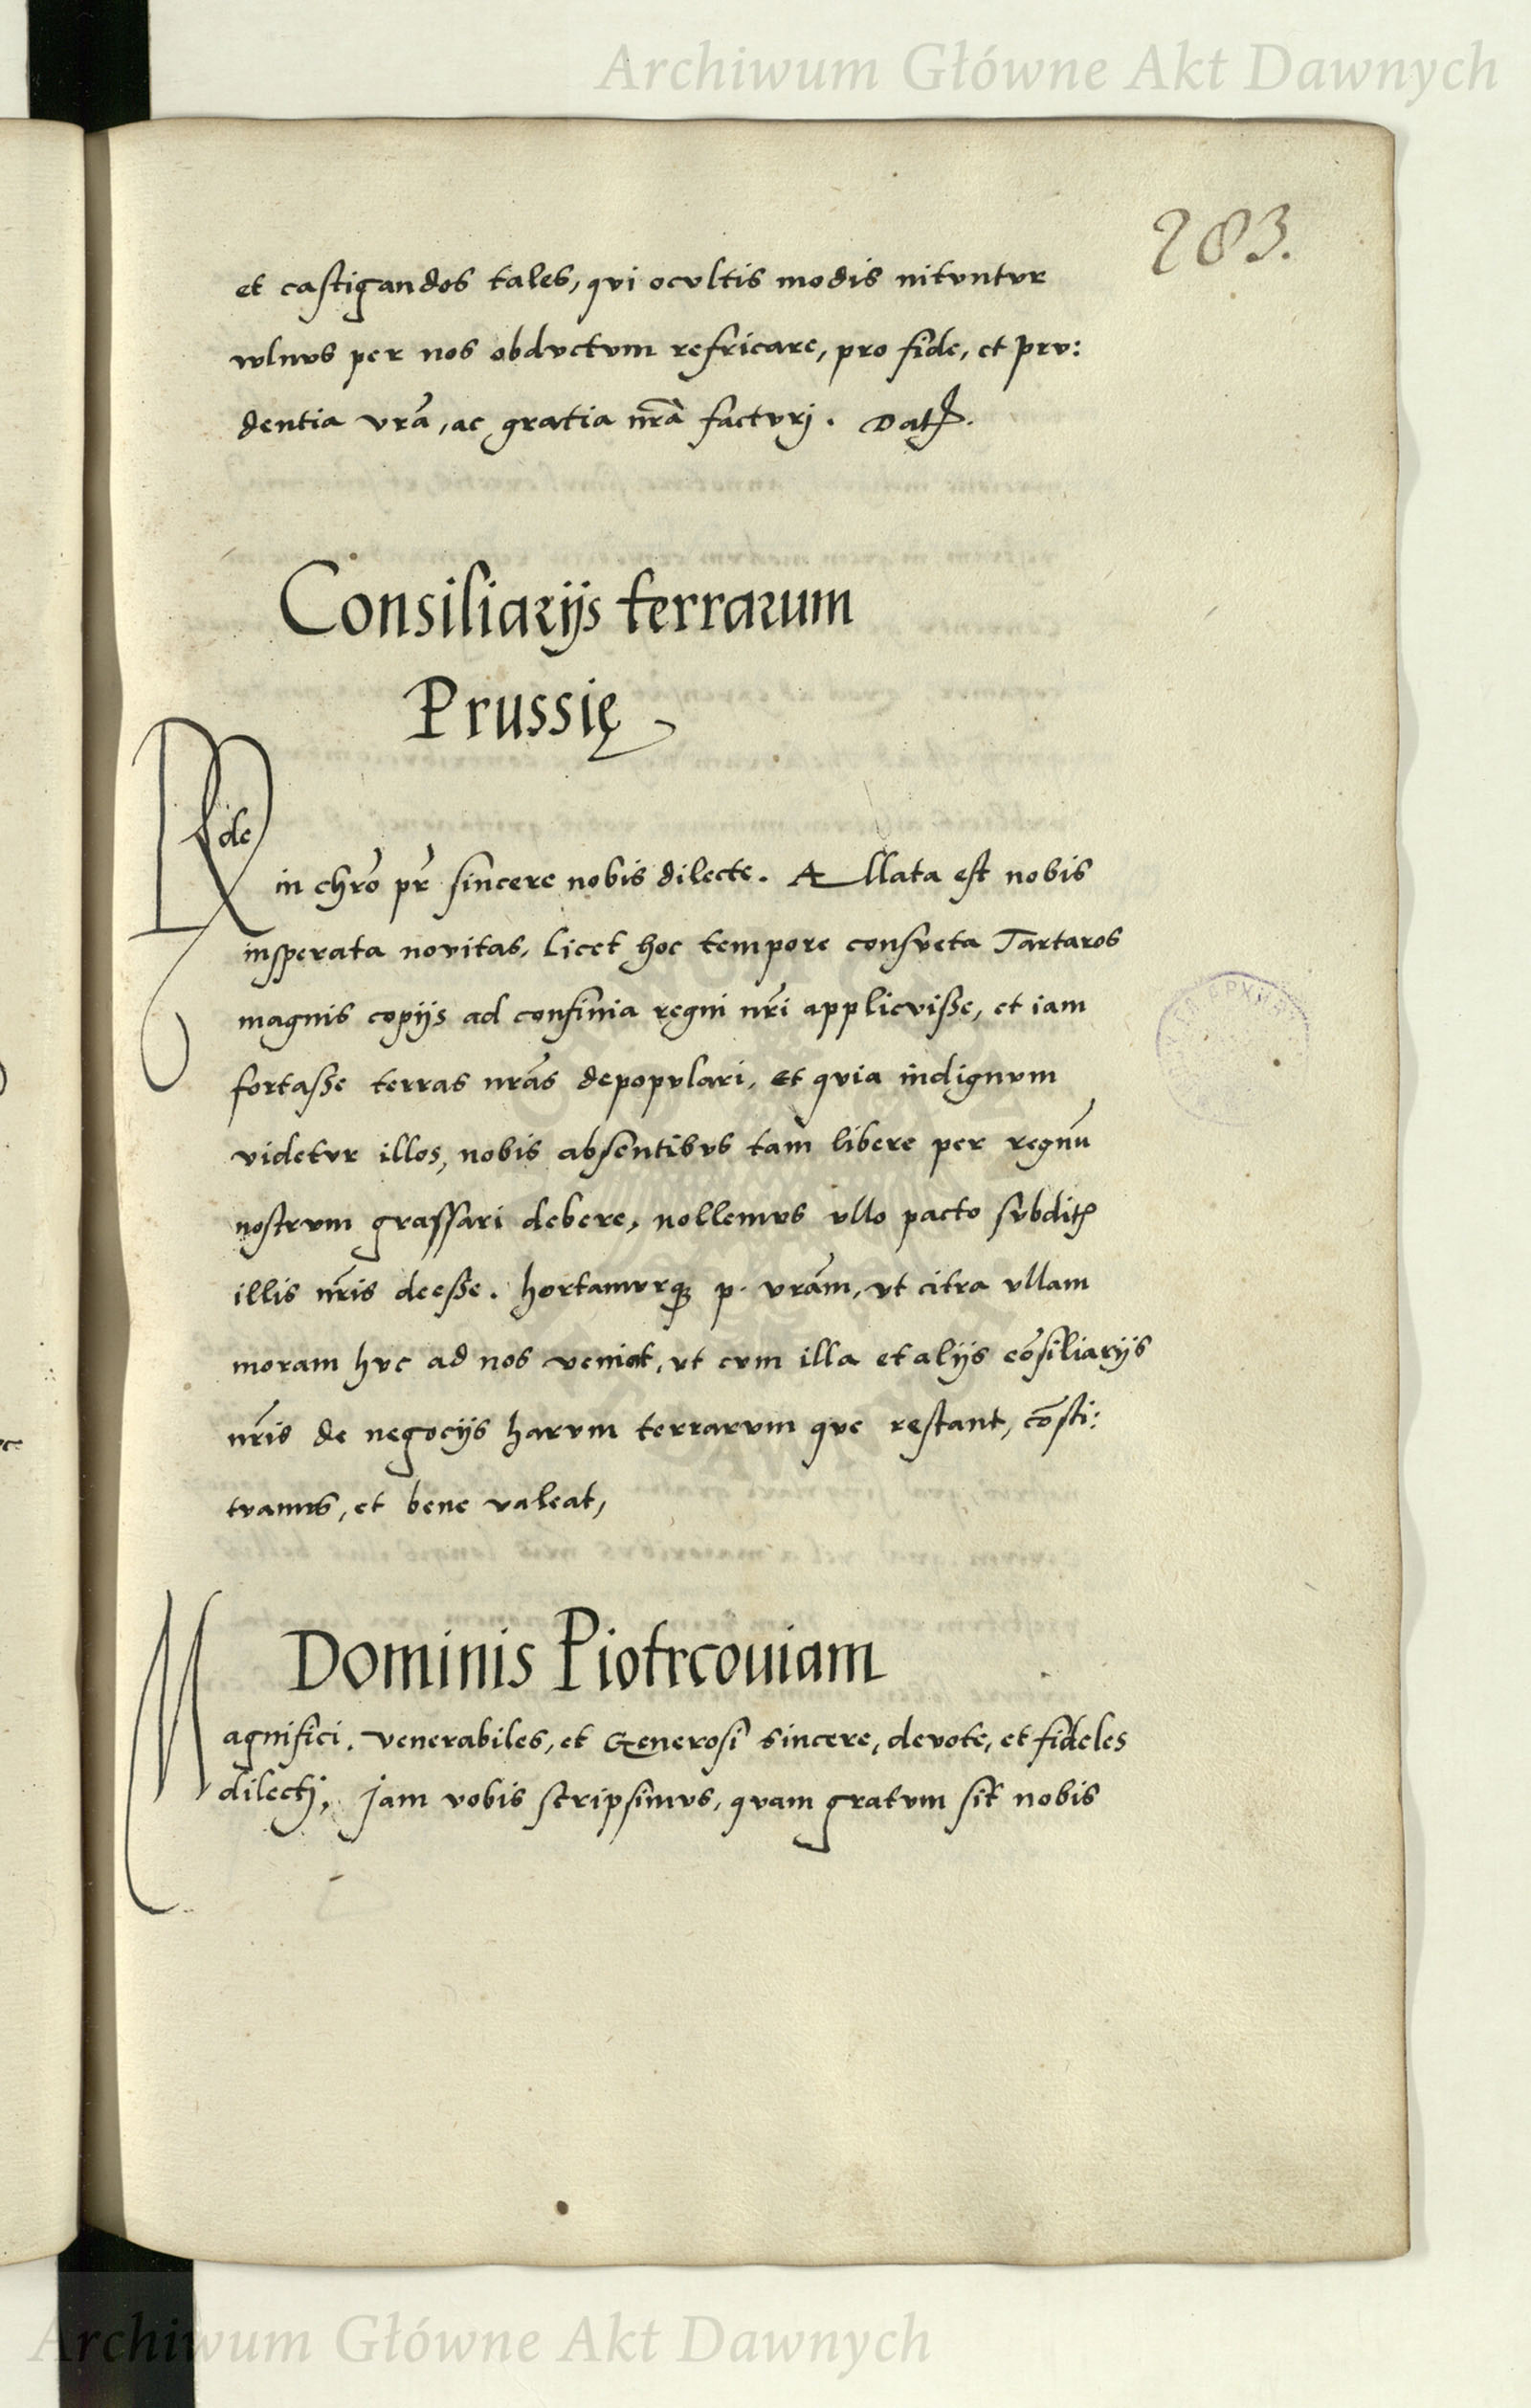 Archiwum Główne Akt Dawnych
283.
et castigandos tales, qui ocultis modis nituntur
vulnus per nos obductum refricare, pro fide, et pru:
dentia vrã, ac gratia nrã facturj. Dat.
Consiliarijs terrarum
Prussię
Rde
in chro pr sincere nobis dilecte. Allata est nobis
insperata novitas, licet hoc tempore consueta Tartaros
magnis copijs ad confinia regni nri applicuisse, et iam
fortasse terras nras depopulari, et quia indignum
videtur illos, nobis absentibus tam libere per regnũ
nostrum grassari debere, nollemus ullo pacto subdit
illis nris deesse. hortamurq p. vram, ut citra ullam
moram huc ad nos veniat, ut cum illa et alijs cõsiliarijs
nris de negocijs harum terrarum que restant, cõsti:
tuamus, et bene valeat,
Dominis Piotrcouiam
Magnifici, venerabiles, et Generosi sincere, devote, et fideles
dilectj, Jam vobis scripsimus, quam gratum sit nobis
Archiwum Główne Akt Dawnych